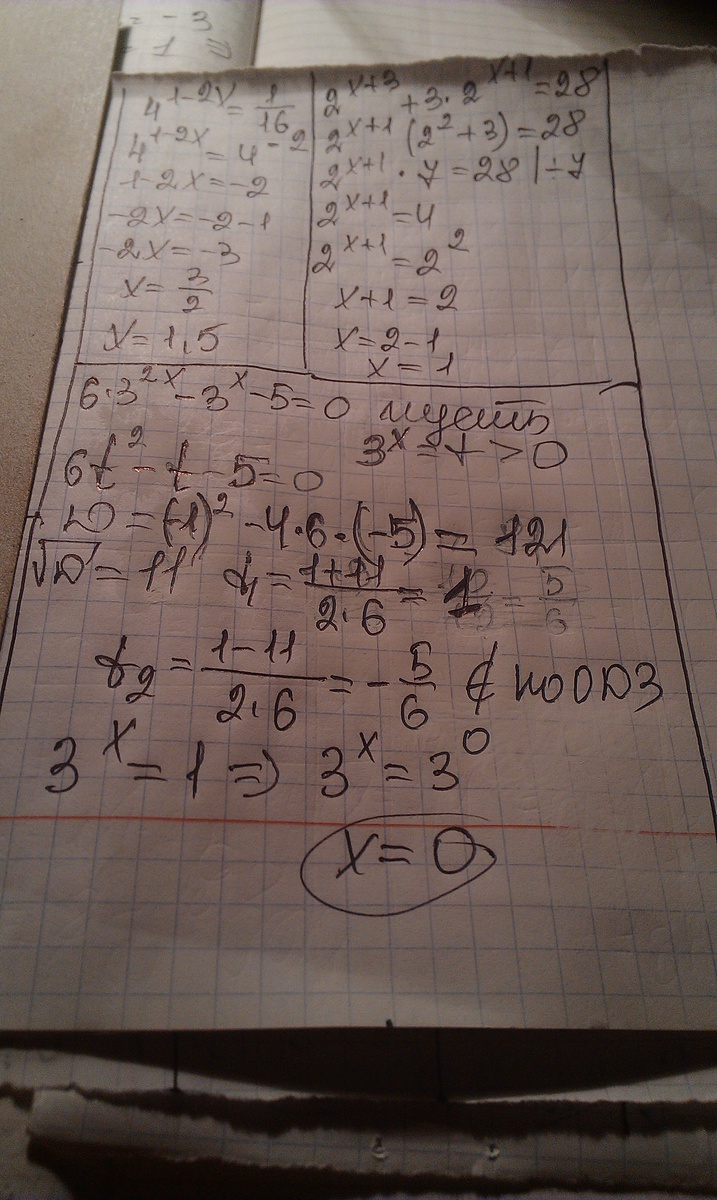 = -3
= 1 ⇒
4^{1-2x} = \frac{1}{16}
4^{1-2x} = 4^{-2}
1-2x = -2
-2x = -2-1
-2x = -3
x = \frac{3}{2}
x = 1,5
2^{x+3} + 3·2^{x+1} = 28
2^{x+1} (2^2 + 3) = 28
2^{x+1} · 7 = 28 | ÷7
2^{x+1} = 4
2^{x+1} = 2^2
x+1 = 2
x = 2-1
x = 1
6·3^{2x} - 3^x - 5 = 0 пусть
3^x = t > 0
6t^2 - t - 5 = 0
D = (-1)^2 - 4·6·(-5) = 121
√D = 11 t_1 = \frac{1+11}{2·6} = 1 = \frac{5}{6}
t_2 = \frac{1-11}{2·6} = -\frac{5}{6} ∉ по ОДЗ
3^x = 1 ⇒ 3^x = 3^0
x = 0